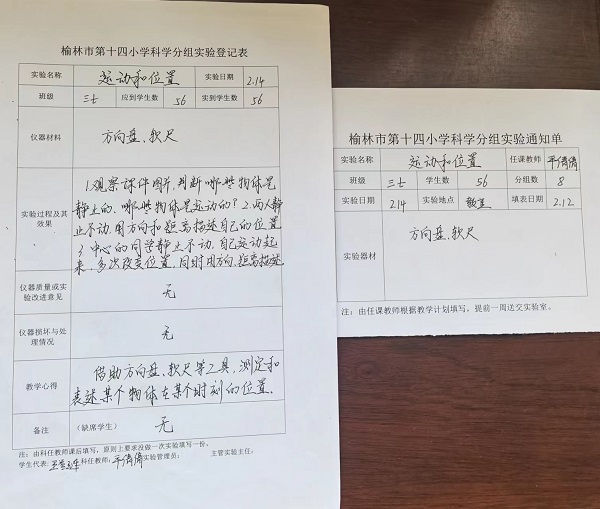 榆林市第十四小学科学分组实验登记表
实验名称 运动和位置 实验日期 2.14
班级 三七 应到学生数 56 实到学生数 56
仪器材料 方向盘、软尺
实验过程及其效果
1.观察课件图片,判断哪些物体是
静止的、哪些物体是运动的?2.两人静
止不动,用方向和距离描述自己的位置
3.中心的同学静止不动,自己运动起
来,多次改变位置,同时用方向、距离描述
仪器质量或实验改进意见 无
仪器损坏与处理情况 无
教学心得 借助方向盘、软尺等工具,测定和
表述某个物体在某个时刻的位置。
备注 (缺席学生) 无
注:由科任教师课后填写,原则上要求没做一次实验填写一份。
学生代表: 科任教师: 实验管理员: 主管实验主任:
榆林市第十四小学科学分组实验通知单
实验名称 运动和位置 任课教师
班级 三七 学生数 56 分组数 8
实验日期 2.14 实验地点 教室 填表日期 2.12
实验器材 方向盘、软尺
注:由任课教师根据教学计划填写,提前一周送交实验室。